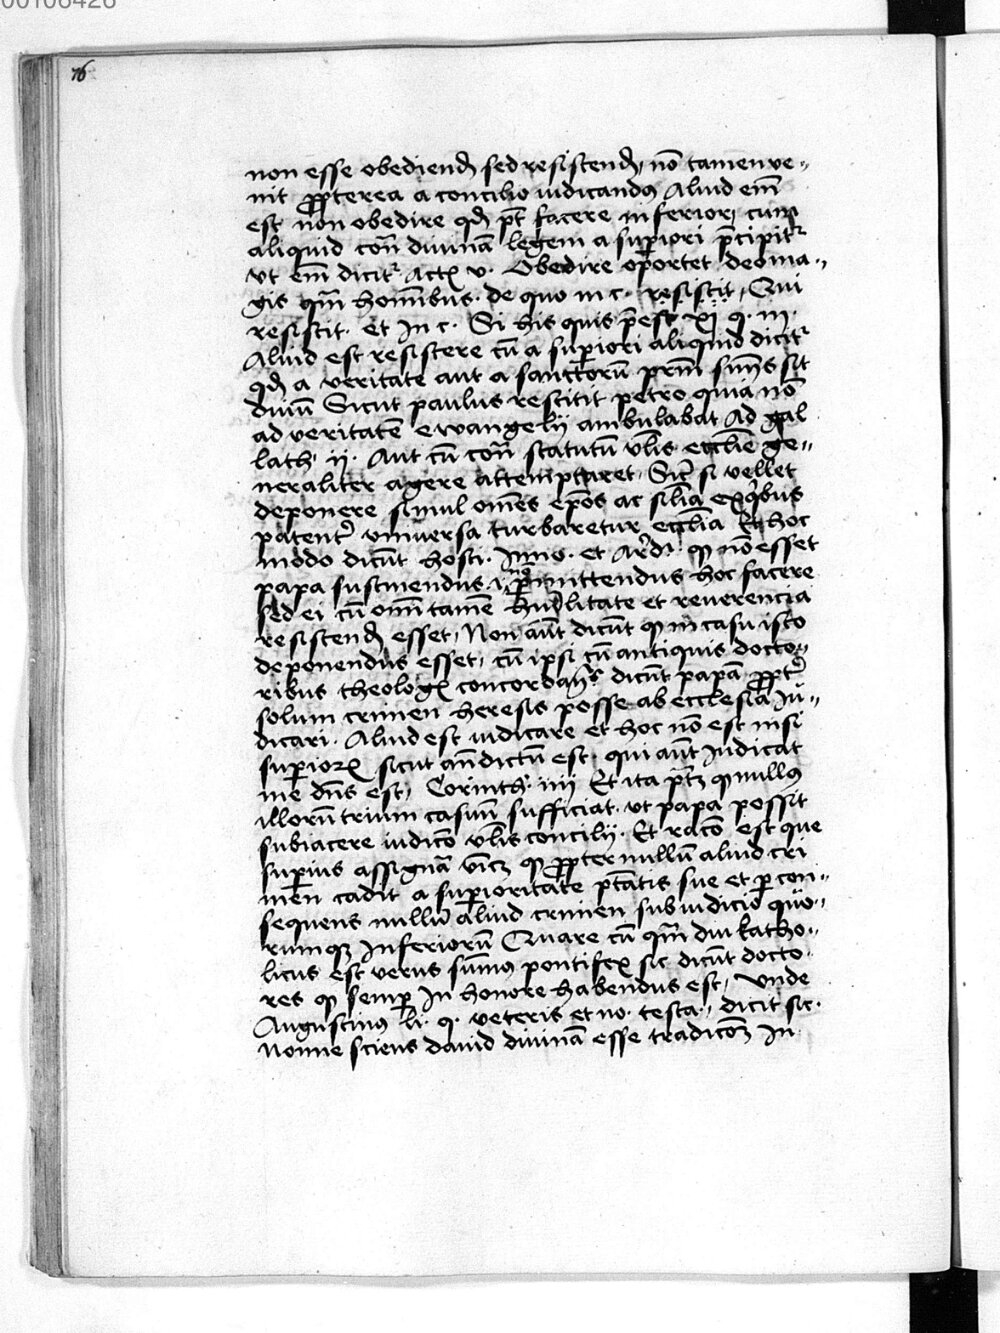 00106426
76
non esse obediend̄ sed resistend̄, nō tamen ve„
nit ꝓpterea a concilio iudicandꝰ Aliud em̄
est non obedire qd̄ pt̄ facere inferior, cum
aliquid con̄ diuinā legem a suꝑiori p̄cipitr
vt em̄ dicitr Actꝝ v. Obedire oportet deo ma„
gis qm̄ hominibus. de quo in c. resistit, Qui
resistit. et In c. Si his quis p̄est xj q. iij.
Aliud est resistere cū a suꝑiori aliquid dicitr
qd̄ a veritate aut a sanctorū prm̄ sn̄iis sit
diuiū Sicut paulus restitit petro quia nō
ad veritatē ewangelij ambulabat Ad gal
lath. ij. Aut cū con̄ statutū vl̄is eccl̄ie ge„
neraliter agere attemptaret, Sic̄ si vellet
deponere simul oēs ep̄os ac sil̄ia ex qibus
patentr vniuersa turbaretur eccl̄ia Et hoc
modo dicūt hosti. Inno. et Ar̄di. ꝙ nō esset
papa sustinendus, nō ꝑmittendus hoc facere
sed ei cū omī tamē hūilitate et reuerencia
resistend̄ esset, Non aūt dicūt ꝙ in casu isto
deponendus esset, cū ipsi cū antiquis docto„
ribus theologꝝ concordantes dicūt papā ꝓptr
solum crimen heresis posse ab ecclesia Iu„
dicari. Aliud est iudicare et hoc nō est nisi
suꝑiorꝝ sicut an̄ dictū est, qui aūt Iudicat
me dn̄s est, Corinth. iiij Et ita ptꝫ ꝙ nullꝰ
illorū trium casuū sufficiat. vt papa possit
subiacere iudicō vl̄is concilij. Et racō est que
suꝑius assignā vicꝫ ꝙ ꝓpter nullū aliud cri
men cadit a suꝑioritate ptātis sue et ꝑ con„
sequens nullū aliud crimen sub iudicio quo„
rumqꝫ Inferiorū Quare cū qm̄ diu katho„
licus est verus sūmꝰ pontifex sic dicūt docto„
res ꝙ semꝑ In honore habendus est, Vnde
Augustinꝰ li. q. veteris et no. testa., dicit sic.
Nonne sciens dauid diuinā esse tradicōꝫ In